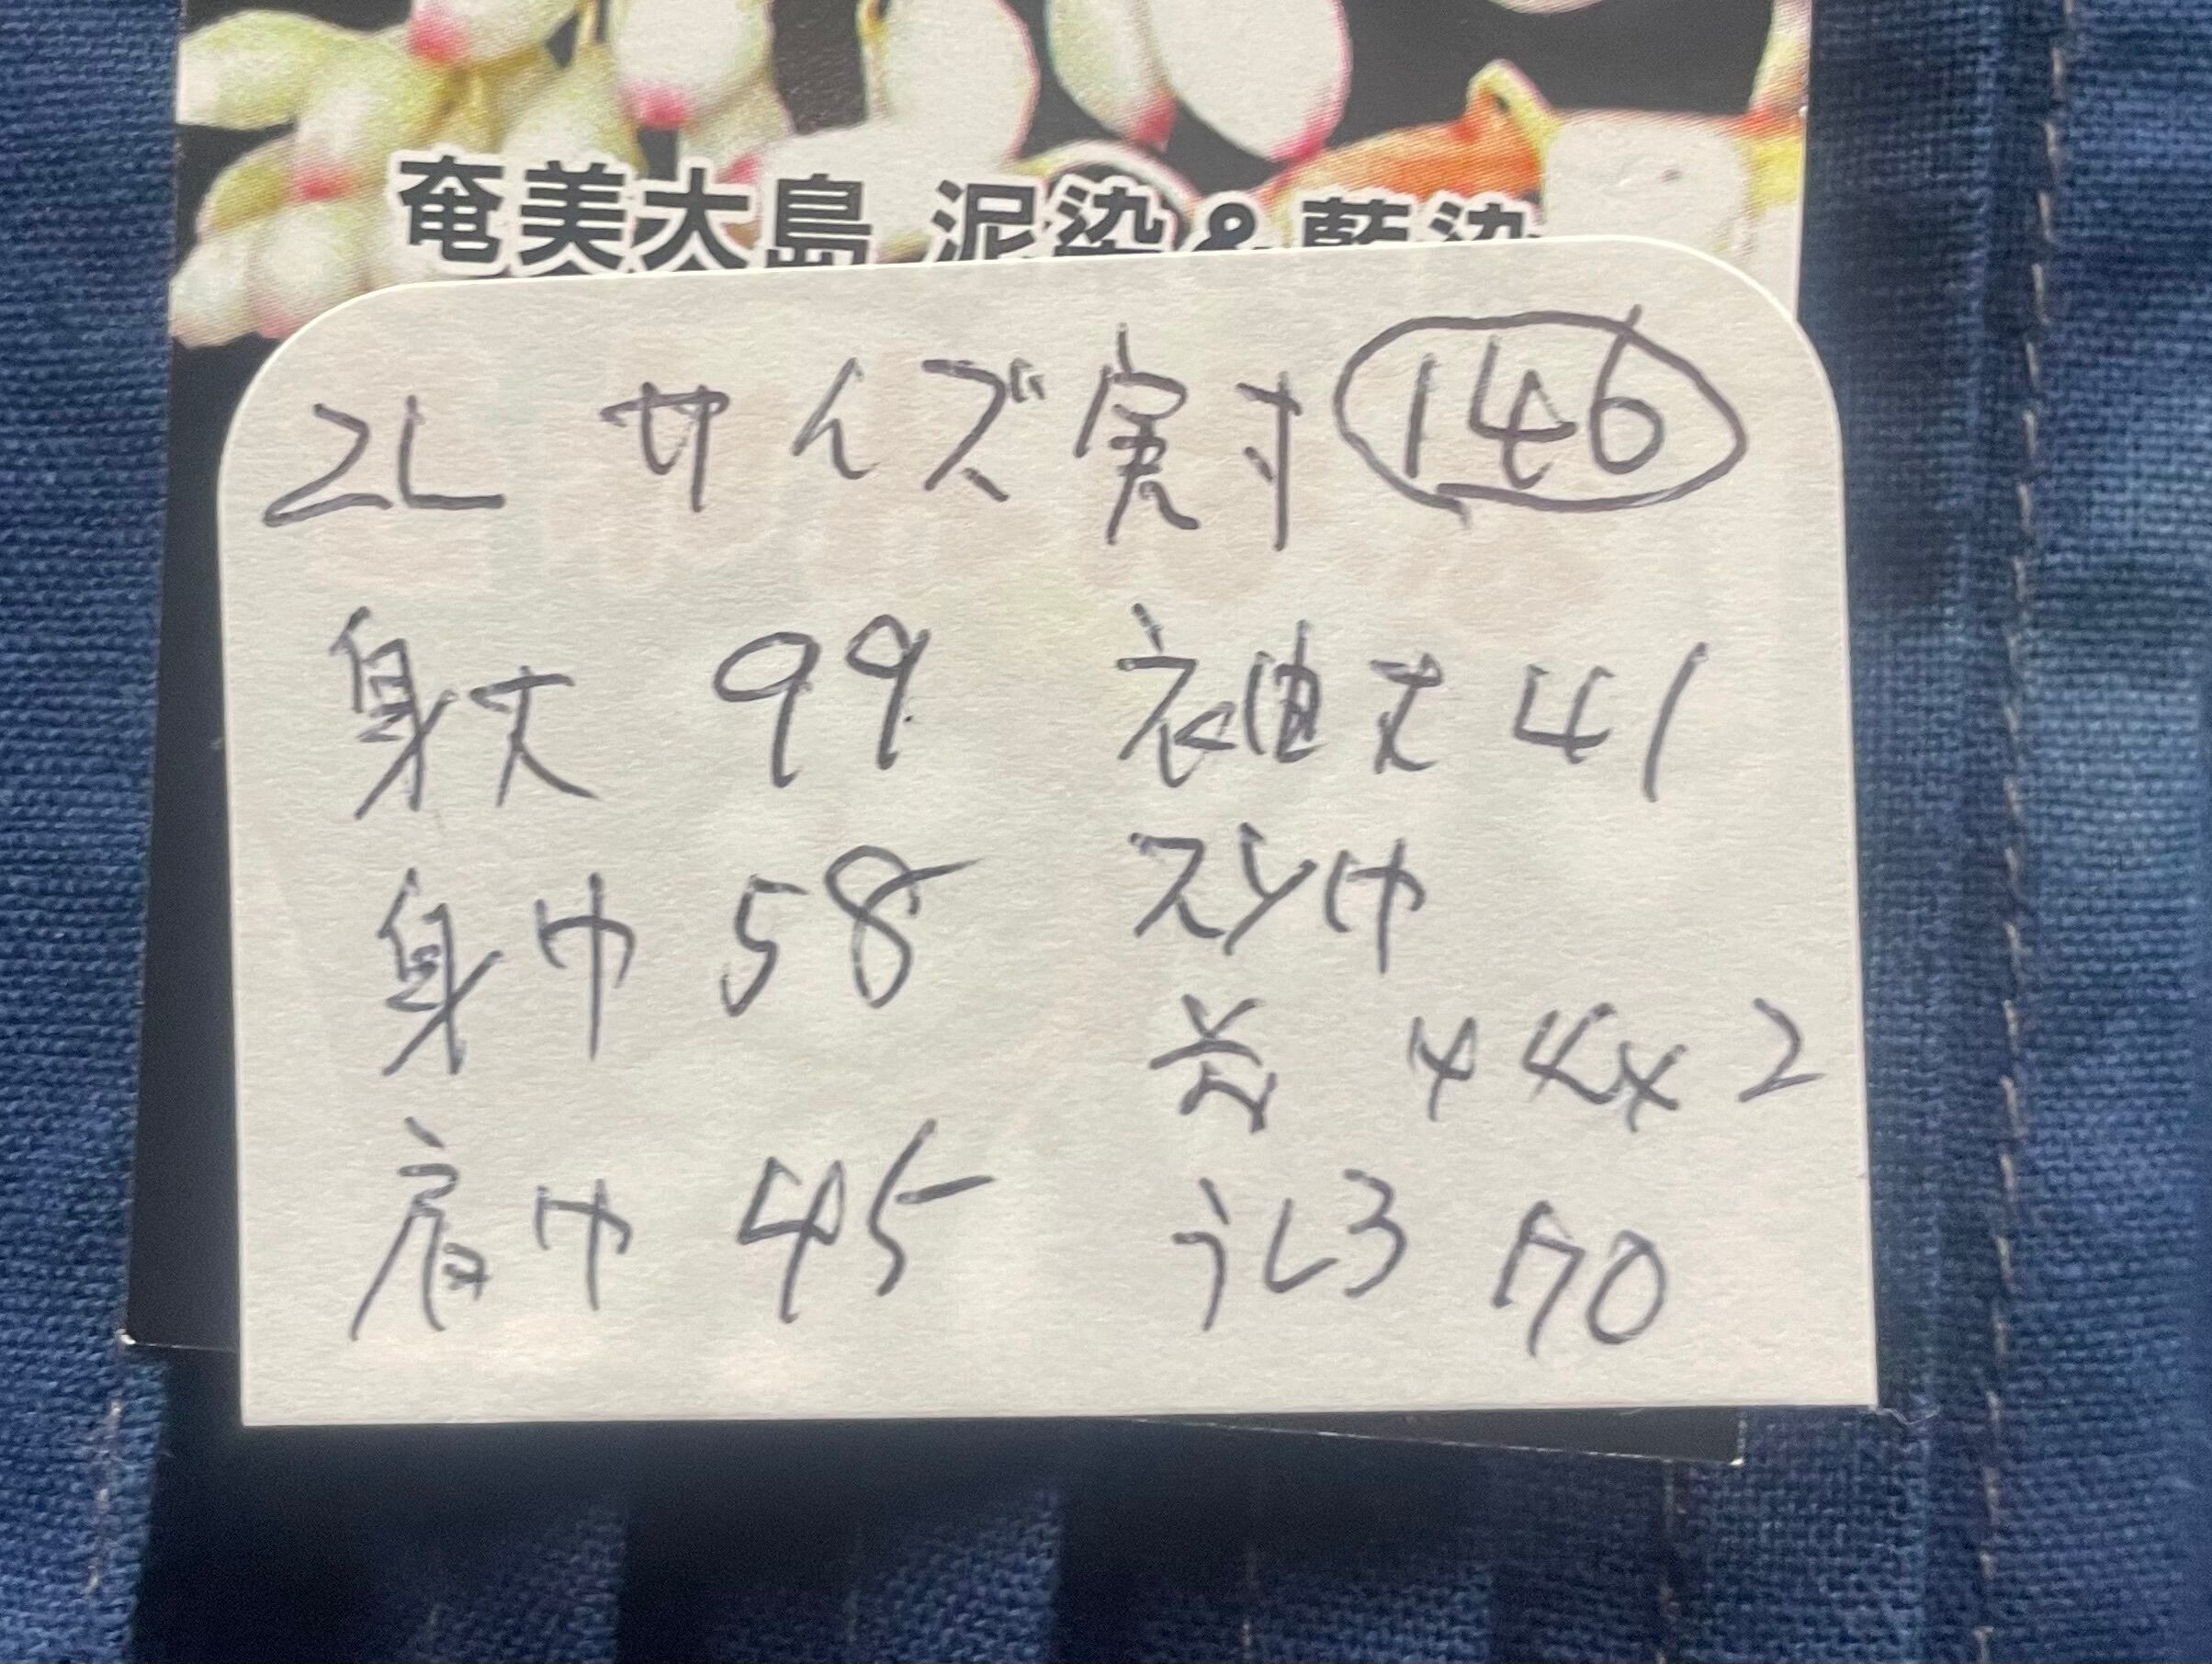 奄美大島 泥染&藍染
2L サイズ実寸 146
身丈 99 袖丈 41
身巾 58 スソ巾
前 44×2
肩巾 45 うしろ 70